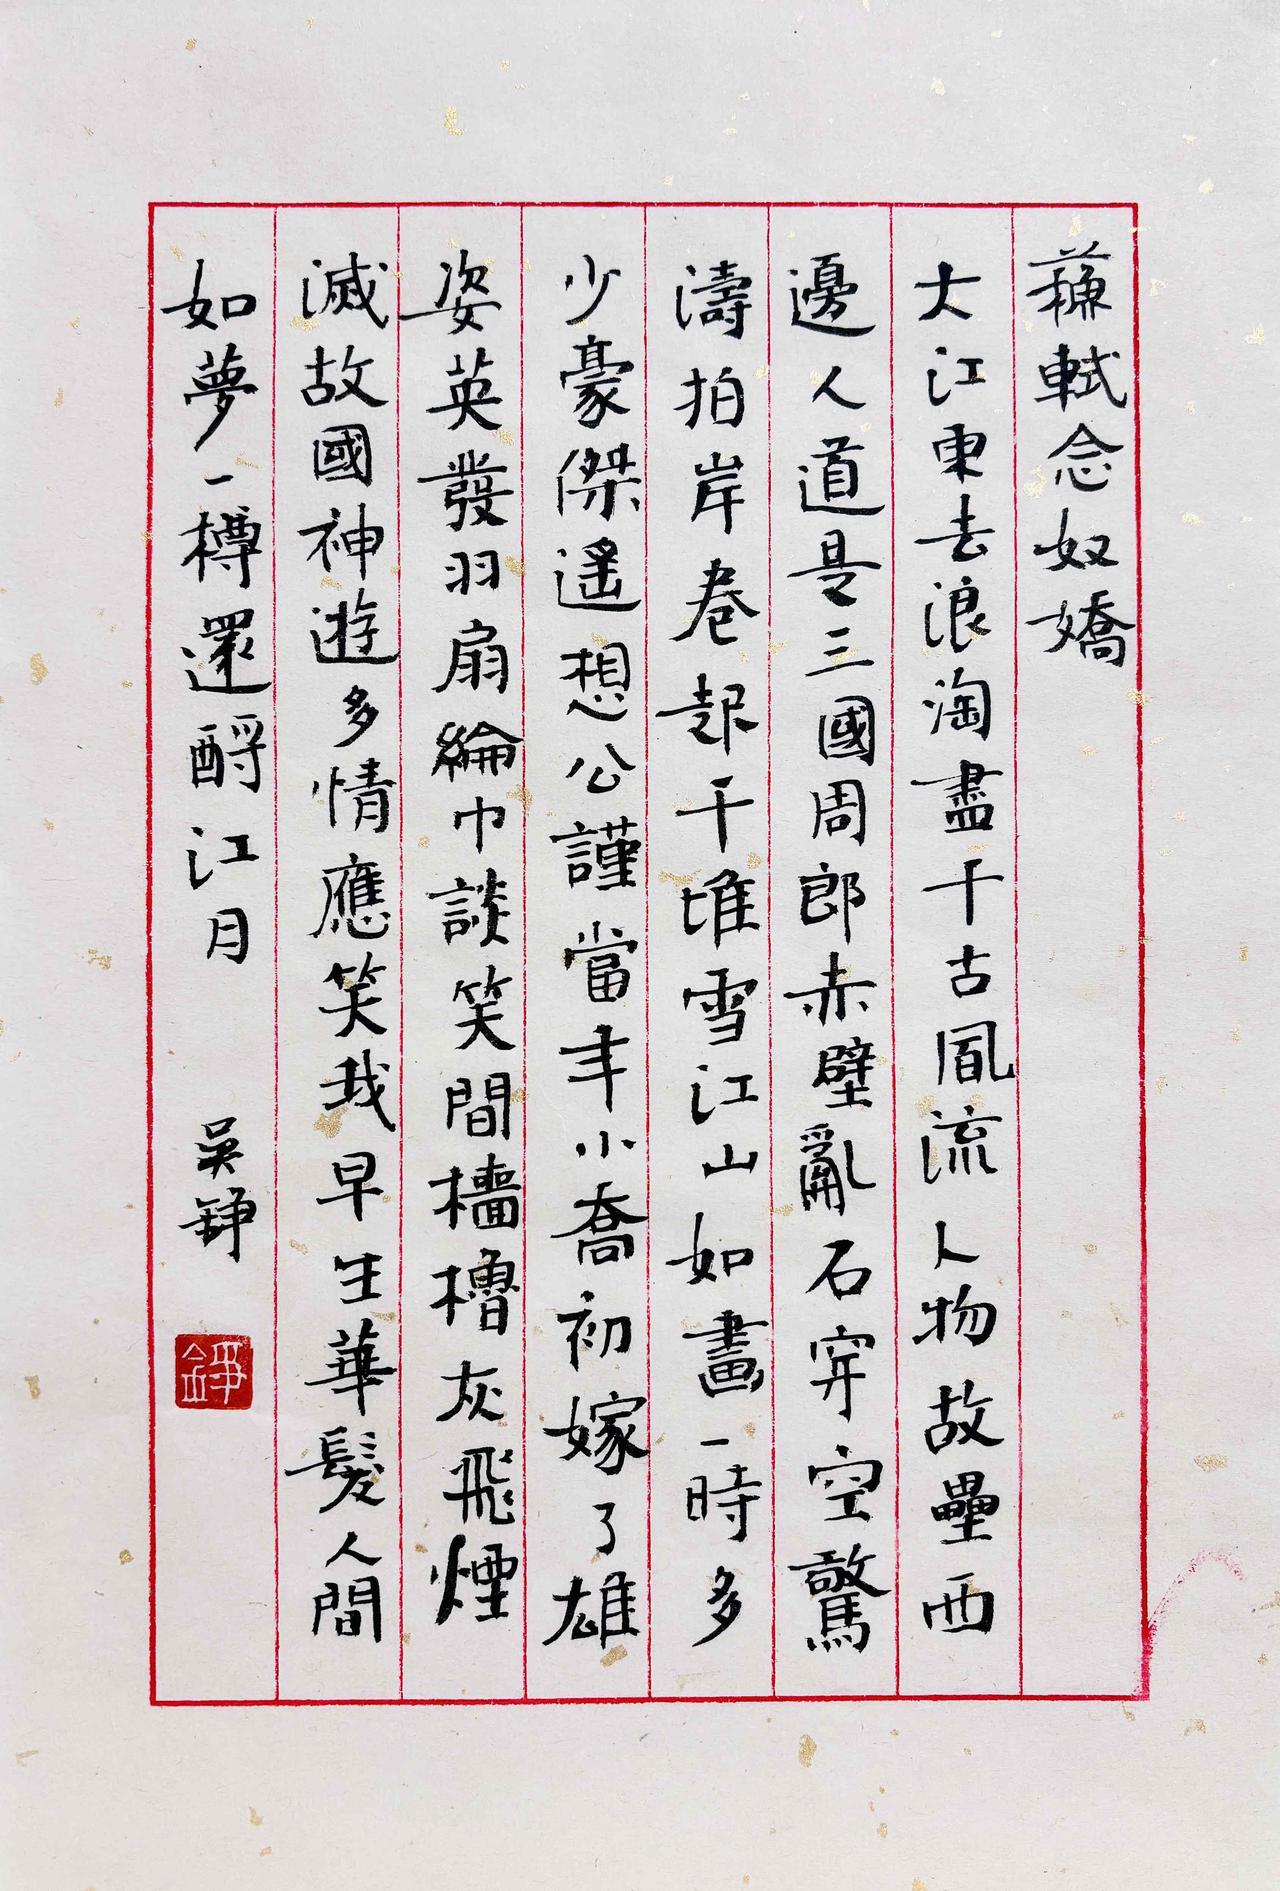 蘇軾念奴嬌
大江東去浪淘盡千古風流人物故壘西
邊人道是三國周郎赤壁亂石穿空驚
濤拍岸卷起千堆雪江山如畫一時多
少豪傑遙想公謹當年小喬初嫁了雄
姿英發羽扇綸巾談笑間檣櫓灰飛煙
滅故國神遊多情應笑我早生華髮人間
如夢一樽還酹江月
吳錚
錚